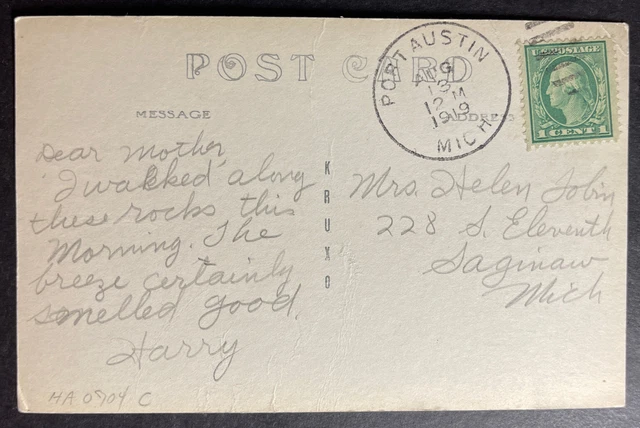 POST CARD
PORT AUSTIN
AUG
13
12 M
1919
MICH
U.S. POSTAGE
1 CENT 1
MESSAGE
ADDRESS
Dear Mother,
I walked along
these rocks this
Morning. The
breeze certainly
smelled good.
Harry
KRUXO
Mrs. Helen Tobin
228 S. Eleventh
Saginaw
Mich
HA 0904 C